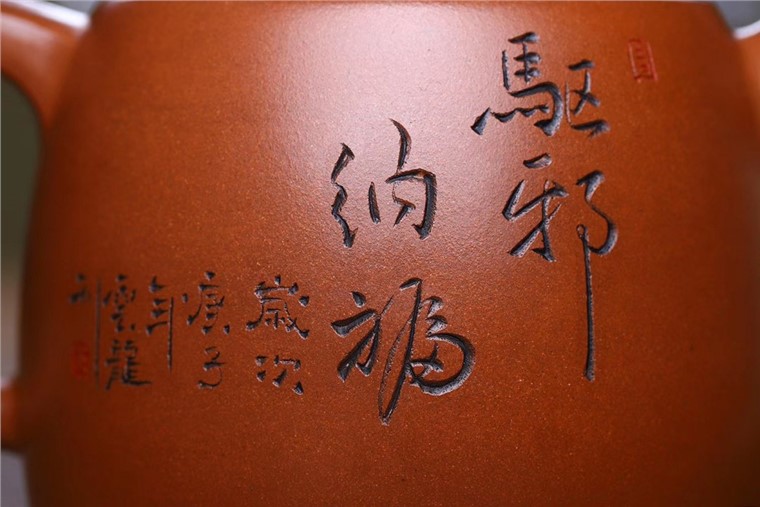 驅邪
納福
歲次
庚子
年
雲龍
刊